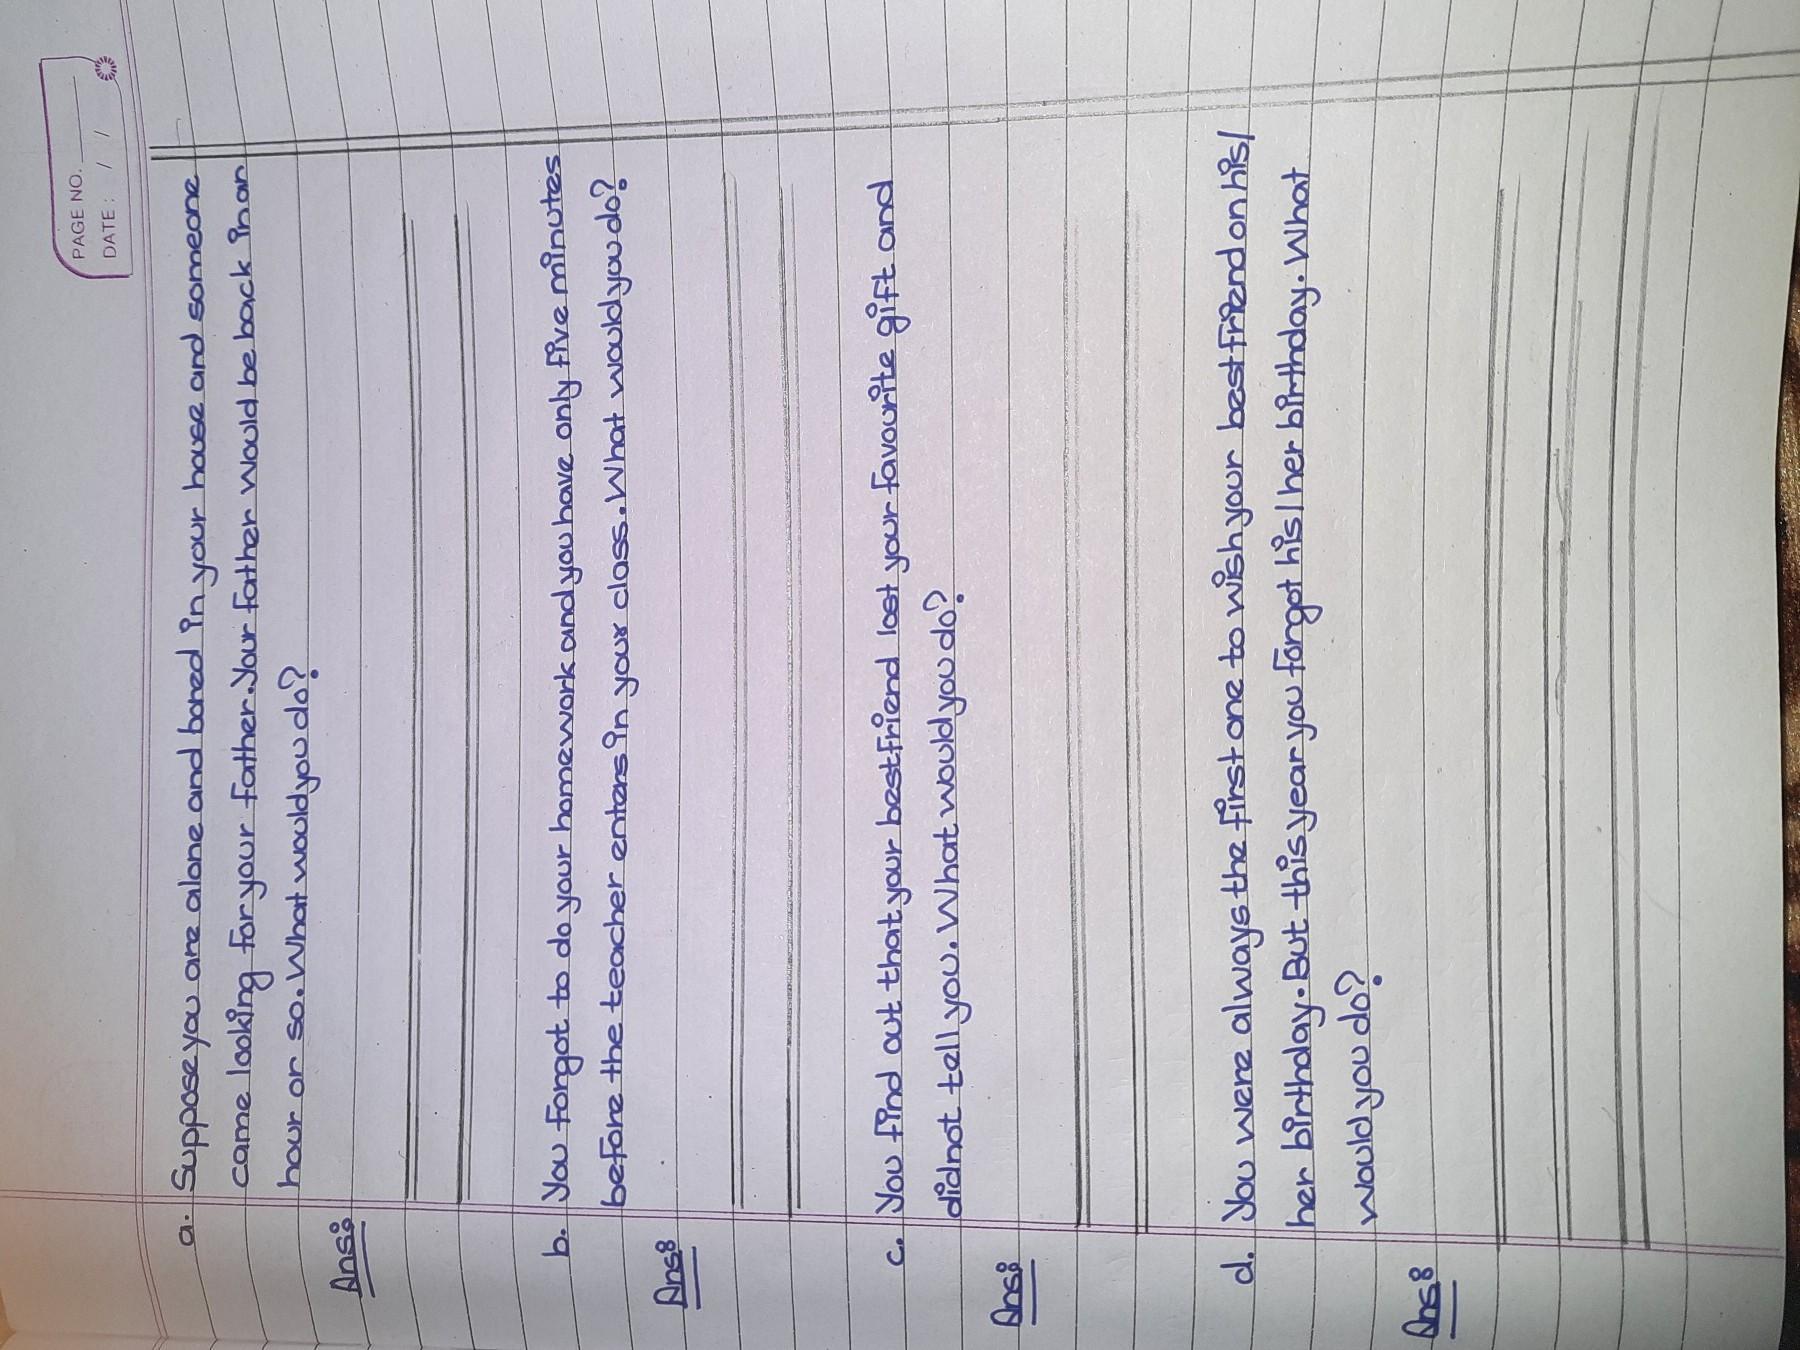 PAGE NO.
DATE: / /
a. Suppose you are alone and bored in your house and someone
came looking for your father. Your father would be back in an
hour or so. What would you do?
Ans:
b. You forgot to do your homework and you have only five minutes
before the teacher enters in your class. What would you do?
Ans:
c. You find out that your best friend lost your favourite gift and
did not tell you. What would you do?
Ans:
d. You were always the first one to wish your best friend on his/
her birthday. But this year you forgot his/her birthday. What
would you do?
Ans: